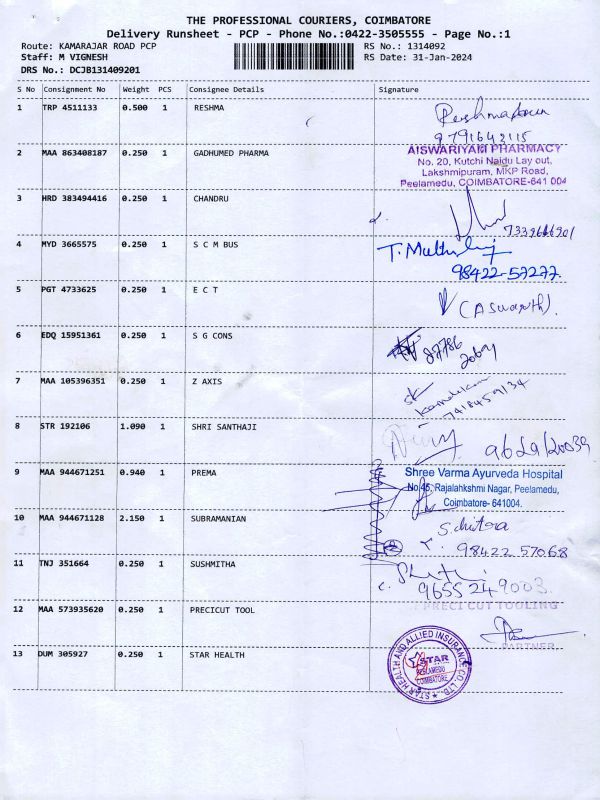 THE PROFESSIONAL COURIERS, COIMBATORE
Delivery Runsheet - PCP - Phone No.:0422-3505555 - Page No.:1
Route: KAMARAJAR ROAD PCP RS No.: 1314092
Staff: M VIGNESH RS Date: 31-Jan-2024
DRS No.: DCJB131409201
S No Consignment No Weight PCS Consignee Details Signature
1 TRP 4511133 0.500 1 RESHMA
9791642115
2 MAA 863408187 0.250 1 GADHUMED PHARMA
AISWARIYAM PHARMACY
No. 20, Kutchi Naidu Lay out,
Lakshmipuram, MKP Road,
Peelamedu, COIMBATORE-641 004
3 HRD 383494416 0.250 1 CHANDRU
4 MYD 3665575 0.250 1 S C M BUS
98422-57277.
5 PGT 4733625 0.250 1 E C T
(Aswanth).
6 EDQ 15951361 0.250 1 S G CONS
7 MAA 105396351 0.250 1 Z AXIS
7418459134
8 STR 192106 1.090 1 SHRI SANTHAJI
9629120039
9 MAA 944671251 0.940 1 PREMA
Shree Varma Ayurveda Hospital
No.45, Rajalahkshmi Nagar, Peelamedu,
Coimbatore- 641004.
10 MAA 944671128 2.150 1 SUBRAMANIAN
S.chitra
98422 57068
11 TNJ 351664 0.250 1 SUSHMITHA
9655249003.
12 MAA 573935620 0.250 1 PRECICUT TOOL
PRECI CUT TOOLING
PARTNER
13 DUM 305927 0.250 1 STAR HEALTH
STAR HEALTH AND ALLIED INSURANCE CO. LTD.
STAR
PEELAMEDU
COIMBATORE